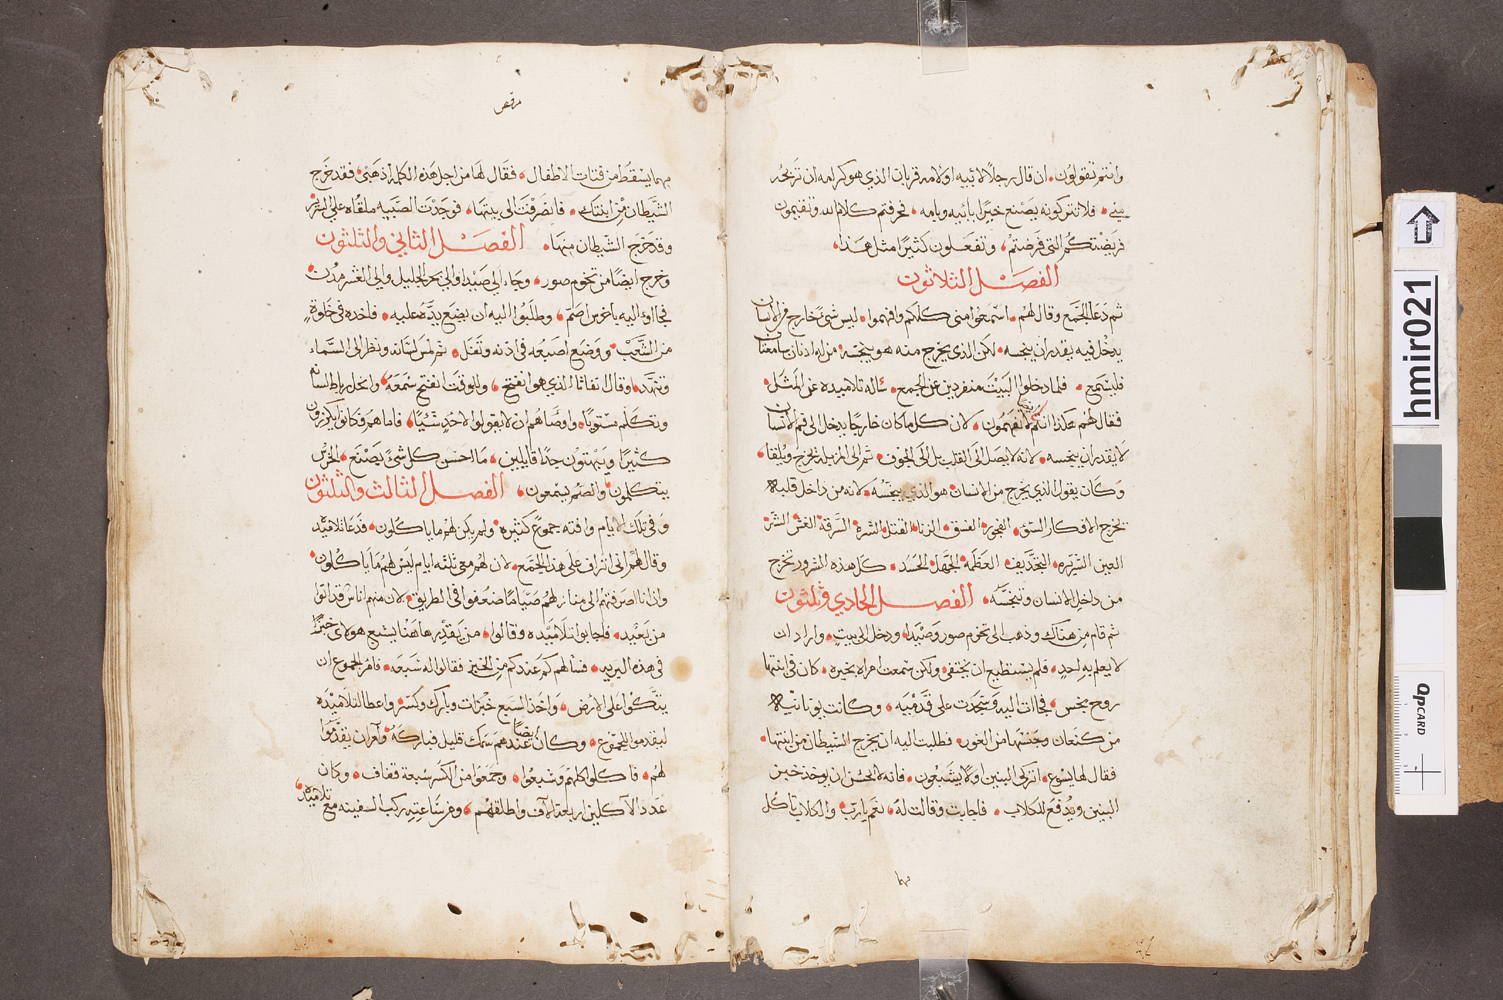 وانتم تقولون. ان قال رجلًا لابيه او لامه قربان الذي هو كرامه ان تربحه
فلا تتركونه يصنع خيرًا بابيه وبامه. فحرفتم كلام الله وتقيمون
فريضتكم التي فرضتم، وتفعلون كثيرًا مثل هذا.
الفصل الثلاثون
ثم دعا الجمع وقال لهم. اسمعوا مني كلكم وافهموا. ليس شئ خارج فم الانسان
يدخل فيه يقدر ان ينجسه. لكن الذي يخرج منه هو ينجسه. من له اذنان سامعتان
فليسمع. فلما دخلوا البيت منفردين عن الجمع. سأله تلاميذه عن المثل.
فقال لهم هكذا انتم لا تفهمون. لان كل ما كان خارجًا يدخل الى فم الانسان
لا يقدر ان ينجسه. لانه لا يصل الى القلب بل الى الجوف. ثم الى المزبله يخرج ويلقا.
وكان يقول الذي يخرج من الانسان هو الذي ينجسه. لانه من داخل قلبه
يخرج الافكار السوء. الفجور. الفسق. الزنا. القتل. الشره. السرقة. الغش. الشر.
العين الشريره. التجديف. العظمه. الجهل. الحسد. كل هذه الشرور تخرج
من داخل الانسان وتنجسه. الفصل الحادي وثلثون
ثم قام من هناك وذهب الى تخوم صور وصيدا. ودخل الى بيت. واراد ان
لا يعلم به احد. فلم يستطيع ان يختفي. ولكن سمعت امراه بخبره. كان في ابنتها
روح نجس. فجاات اليه وسجدت على قدميه. وكانت يونانيه
من كنعان وجنسها من الغور. فطلبت اليه ان يخرج الشيطان من ابنتها.
فقال لها يسوع. اتركي البنين اولًا يشبعون. فانه لا يحسن ان يوخذ خبز
البنين ويدفع للكلاب. فاجابت وقالت له. نعم يارب والكلاب تاكل
مرقس
مما يسقط من فتات الاطفال. فقال لها من اجل هذه الكلمة اذهبي. فقد خرج
الشيطان من ابنتك. فانصرفت الى بيتها. فوجدت الصبيه ملقاه على السرير
وقد خرج الشيطان منها. الفصل الثاني والثلثون
وخرج ايضًا من تخوم صور. وجاء الى صيدا والى بحر الجليل والى العشر مدن.
فجااوء اليه باخرس اصم. وطلبوا اليه ان يضع يده عليه. فاخذه في خلوة
من الشعب. ووضع اصبعه في اذنه وتفل. ثم لمس لسانه ونظر الى السماء
وتنهد. وقال انفاثا الذي هو انفتح. وللوقت انفتح سمعه. وانحل رباط لسانه
وتكلم مستويًا. واوصاهم ان لا يقولوا لاحد شئًا. فاما هم فكانوا يكرزون
كثيرًا ويبهتون جدًا قايلين. ما احسن كل شئ يصنع. الخرس
يتكلمون والصم يسمعون. الفصل الثالث والثلثون
وفي تلك الايام وافته جموع كثيره. ولم يكن لهم ما ياكلون. فدعا تلاميذه
وقال لهم اني اتراف على هذا الجمع. لان لهم معي ثلثه ايام ليس لهم ما ياكلون
وان انا صرفتهم الى منازلهم صيامًا ضعفوا في الطريق. لان منهم اناس قد اتوا
من بعيد. فاجابوا تلاميذه وقالوا. من يقدر هاهنا يشبع هولاي خبزًا
في هذه البريه. فسالهم كم عندكم من الخبز فقالوا له سبعه. فامر الجموع ان
يتكوا على الارض. واخذ السبع خبزات وبارك وكسر واعطا لتلاميذه
ليقدموا للجموع. وكان ايضًا عندهم سمك قليل فباركه. وامر ان يقدموا
لهم. فاكلوا كلهم وشبعوا. وجمعوا من الكسر سبعة قفاف. وكان
عدد الآكلين اربعة الاف واطلقهم. ومن ساعته ركب السفينه مع تلاميذه